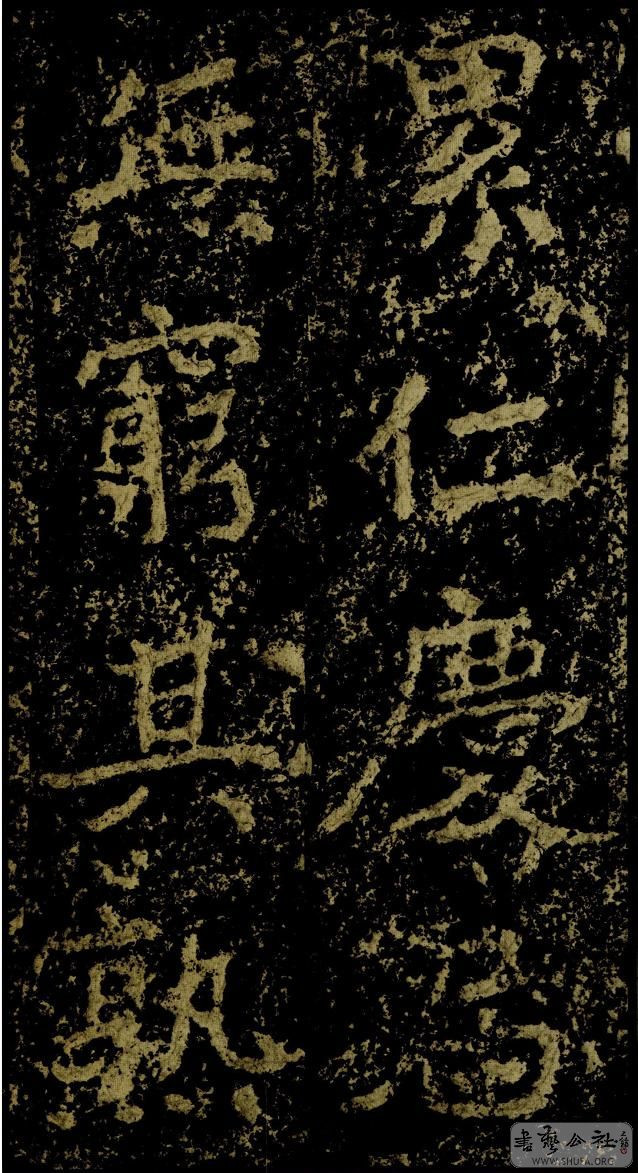 累仁慶
無窮其孰
書藝公社
WWW.SHUFA.ORG